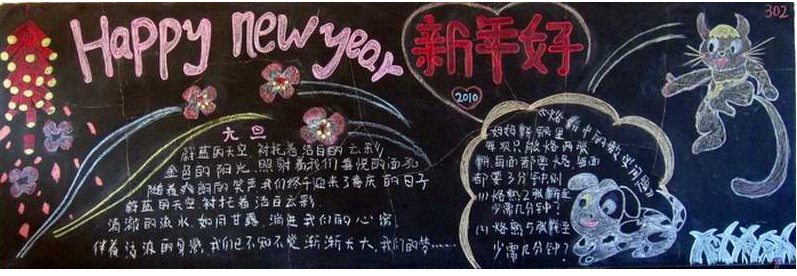 Happy new year
新年好
302
2010
元旦
蔚蓝的天空,衬托着洁白的云彩
金色的阳光,照射着我们喜悦的面孔
随着爽朗的笑声我们终于迎来了喜庆的日子
蔚蓝的天空,衬托着洁白云彩
清澈的流水,如同甘露,淌进我们的心窝
伴着活泼的身影,我们已不知不觉渐渐长大,我们的梦……
烙饼中的数学问题
妈妈鲜锅里
每次只能烙两张
饼,每面都要烙,每面
都要3分钟,则
(1)烙熟2张饼至
少需几分钟?
(2)烙熟5张饼至
少需几分钟?